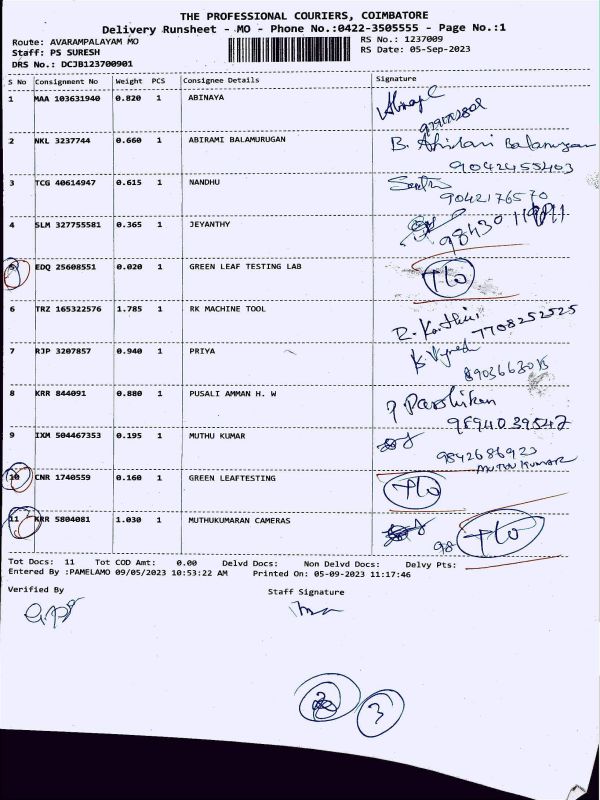 THE PROFESSIONAL COURIERS, COIMBATORE
Delivery Runsheet - MO - Phone No.:0422-3505555 - Page No.:1
Route: AVARAMPALAYAM MO
RS No.: 1237009
Staff: PS SURESH
RS Date: 05-Sep-2023
DRS No.: DCJB123700901
S No Consignment No Weight PCS Consignee Details Signature
1 MAA 103631940 0.820 1 ABINAYA
2 NKL 3237744 0.660 1 ABIRAMI BALAMURUGAN B. Abirami Balamurugan
9042455403
3 TCG 40614947 0.615 1 NANDHU
9042176570
4 SLM 327755581 0.365 1 JEYANTHY
5 EDQ 25608551 0.020 1 GREEN LEAF TESTING LAB T/O
6 TRZ 165322576 1.785 1 RK MACHINE TOOL
7708252525
7 RJP 3207857 0.940 1 PRIYA
8 KRR 844091 0.880 1 PUSALI AMMAN H. W
9894039547
9 IXM 504467353 0.195 1 MUTHU KUMAR
9842686923
MUTHU KUMAR
10 CNR 1740559 0.160 1 GREEN LEAFTESTING T/O
11 KRR 5804081 1.030 1 MUTHUKUMARAN CAMERAS 98 T/O
Tot Docs: 11 Tot COD Amt: 0.00 Delvd Docs: Non Delvd Docs: Delvy Pts:
Entered By :PAMELAMO 09/05/2023 10:53:22 AM Printed On: 05-09-2023 11:17:46
Verified By Staff Signature
3